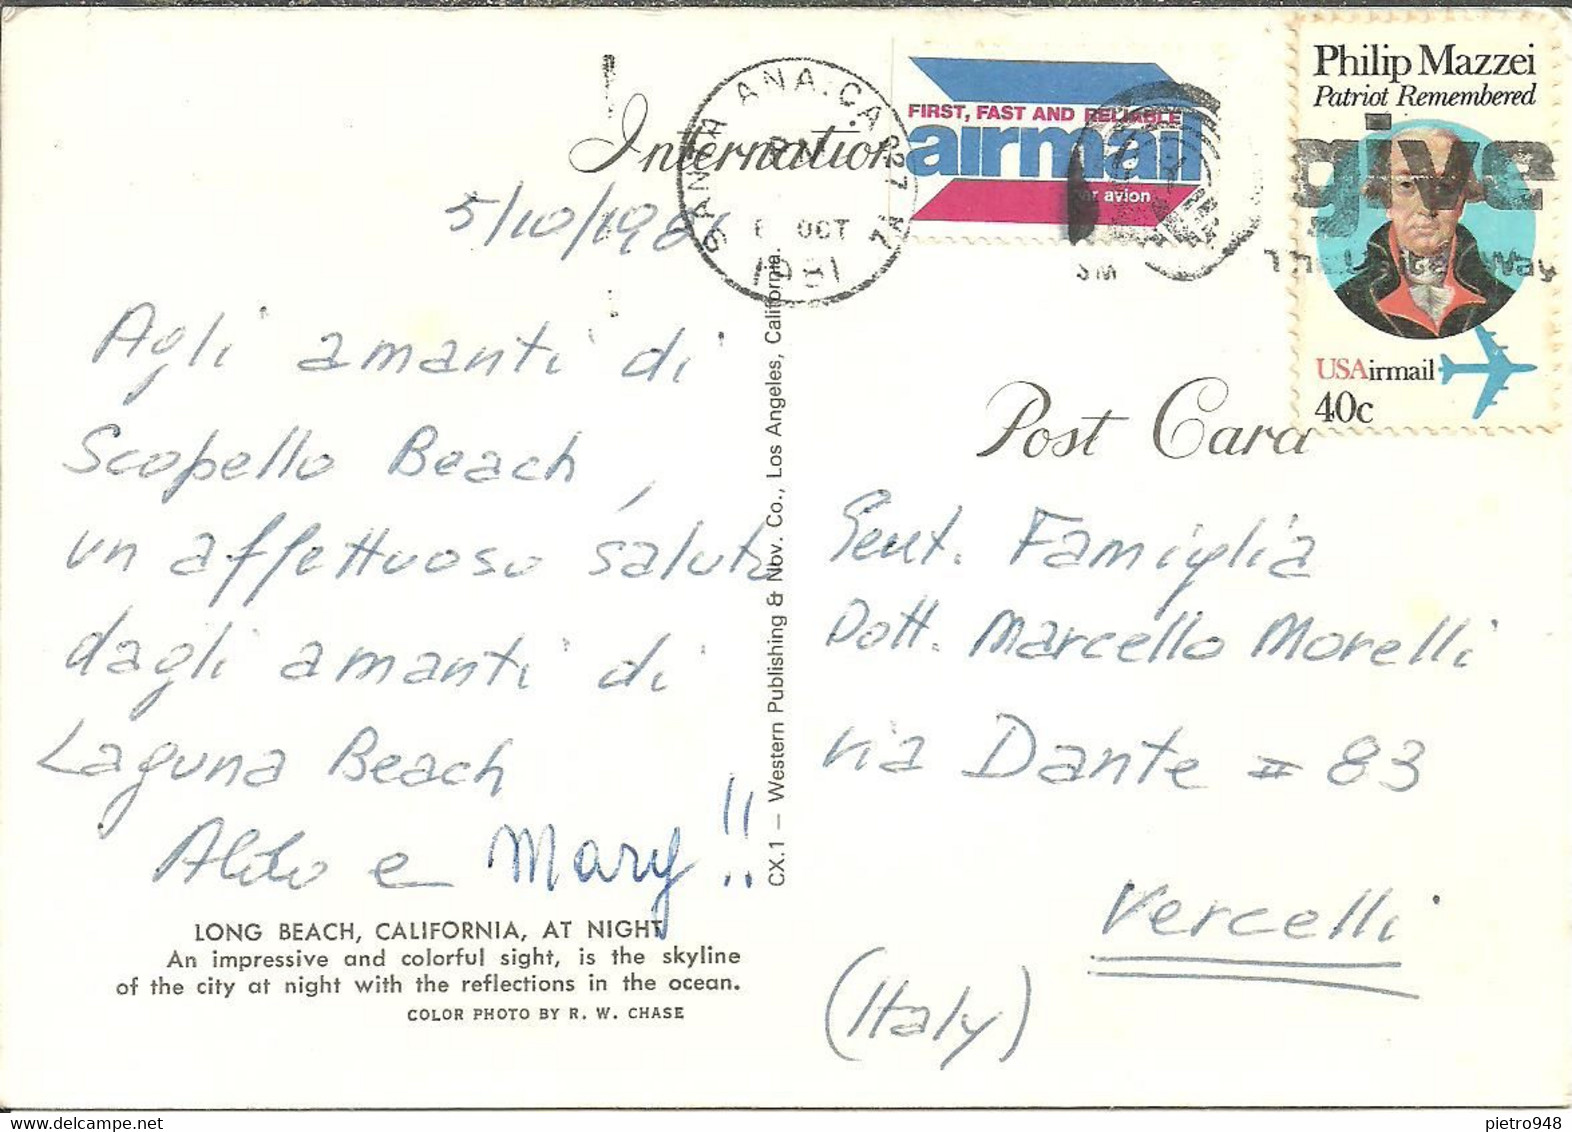 International
SANTA ANA, CA 927
PM
6 OCT
1981
FIRST, FAST AND RELIABLE
airmail
par avion
Philip Mazzei
Patriot Remembered
give
The United Way
USAirmail
40c
5/10/1981
Agli amanti di
Scopello Beach,
un affettuoso saluto
dagli amanti di
Laguna Beach
Aldo e Mary!!
LONG BEACH, CALIFORNIA, AT NIGHT
An impressive and colorful sight, is the skyline
of the city at night with the reflections in the ocean.
COLOR PHOTO BY R. W. CHASE
CX.1 — Western Publishing & Nov. Co., Los Angeles, California.
Post Card
Gent. Famiglia
Dott. Marcello Morelli
via Dante # 83
Vercelli
(Italy)
pietro948